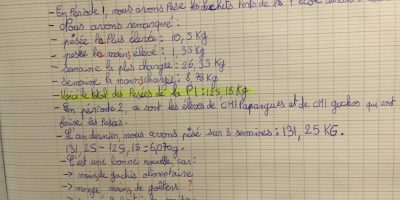 - En Période 1, nous avons pesé les déchets verts de la
- Nous avons remarqué :
- pesée la plus élevée : 10,5 Kg
- pesée la moins élevé : 1,35 Kg
- semaine la plus chargée : 26,35 Kg
- Semaine la moins chargée : 8,78 Kg
le total des Pesées de la P1 : 125,18 Kg
- En période 2, ce sont les élèves de CM1 papangues et de CM1 geckos qui ont
faire les Pesées.
- L'an dernier nous avons pesé sur 6 semaines : 131,25 KG.
131,25 - 125,18 = 6,07 Kg.
C'est une bonne nouvelle, car :
→ moins de gâchis alimentaire
→ mange moins de goûters ?